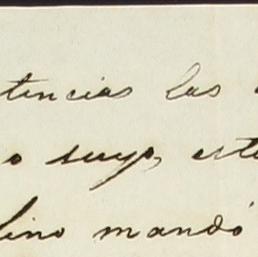 tencias las
o suyo, este
lino mandó